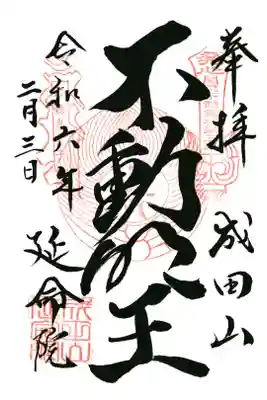 奉拝
成田山
不動明王
令和六年
二月三日
延命院